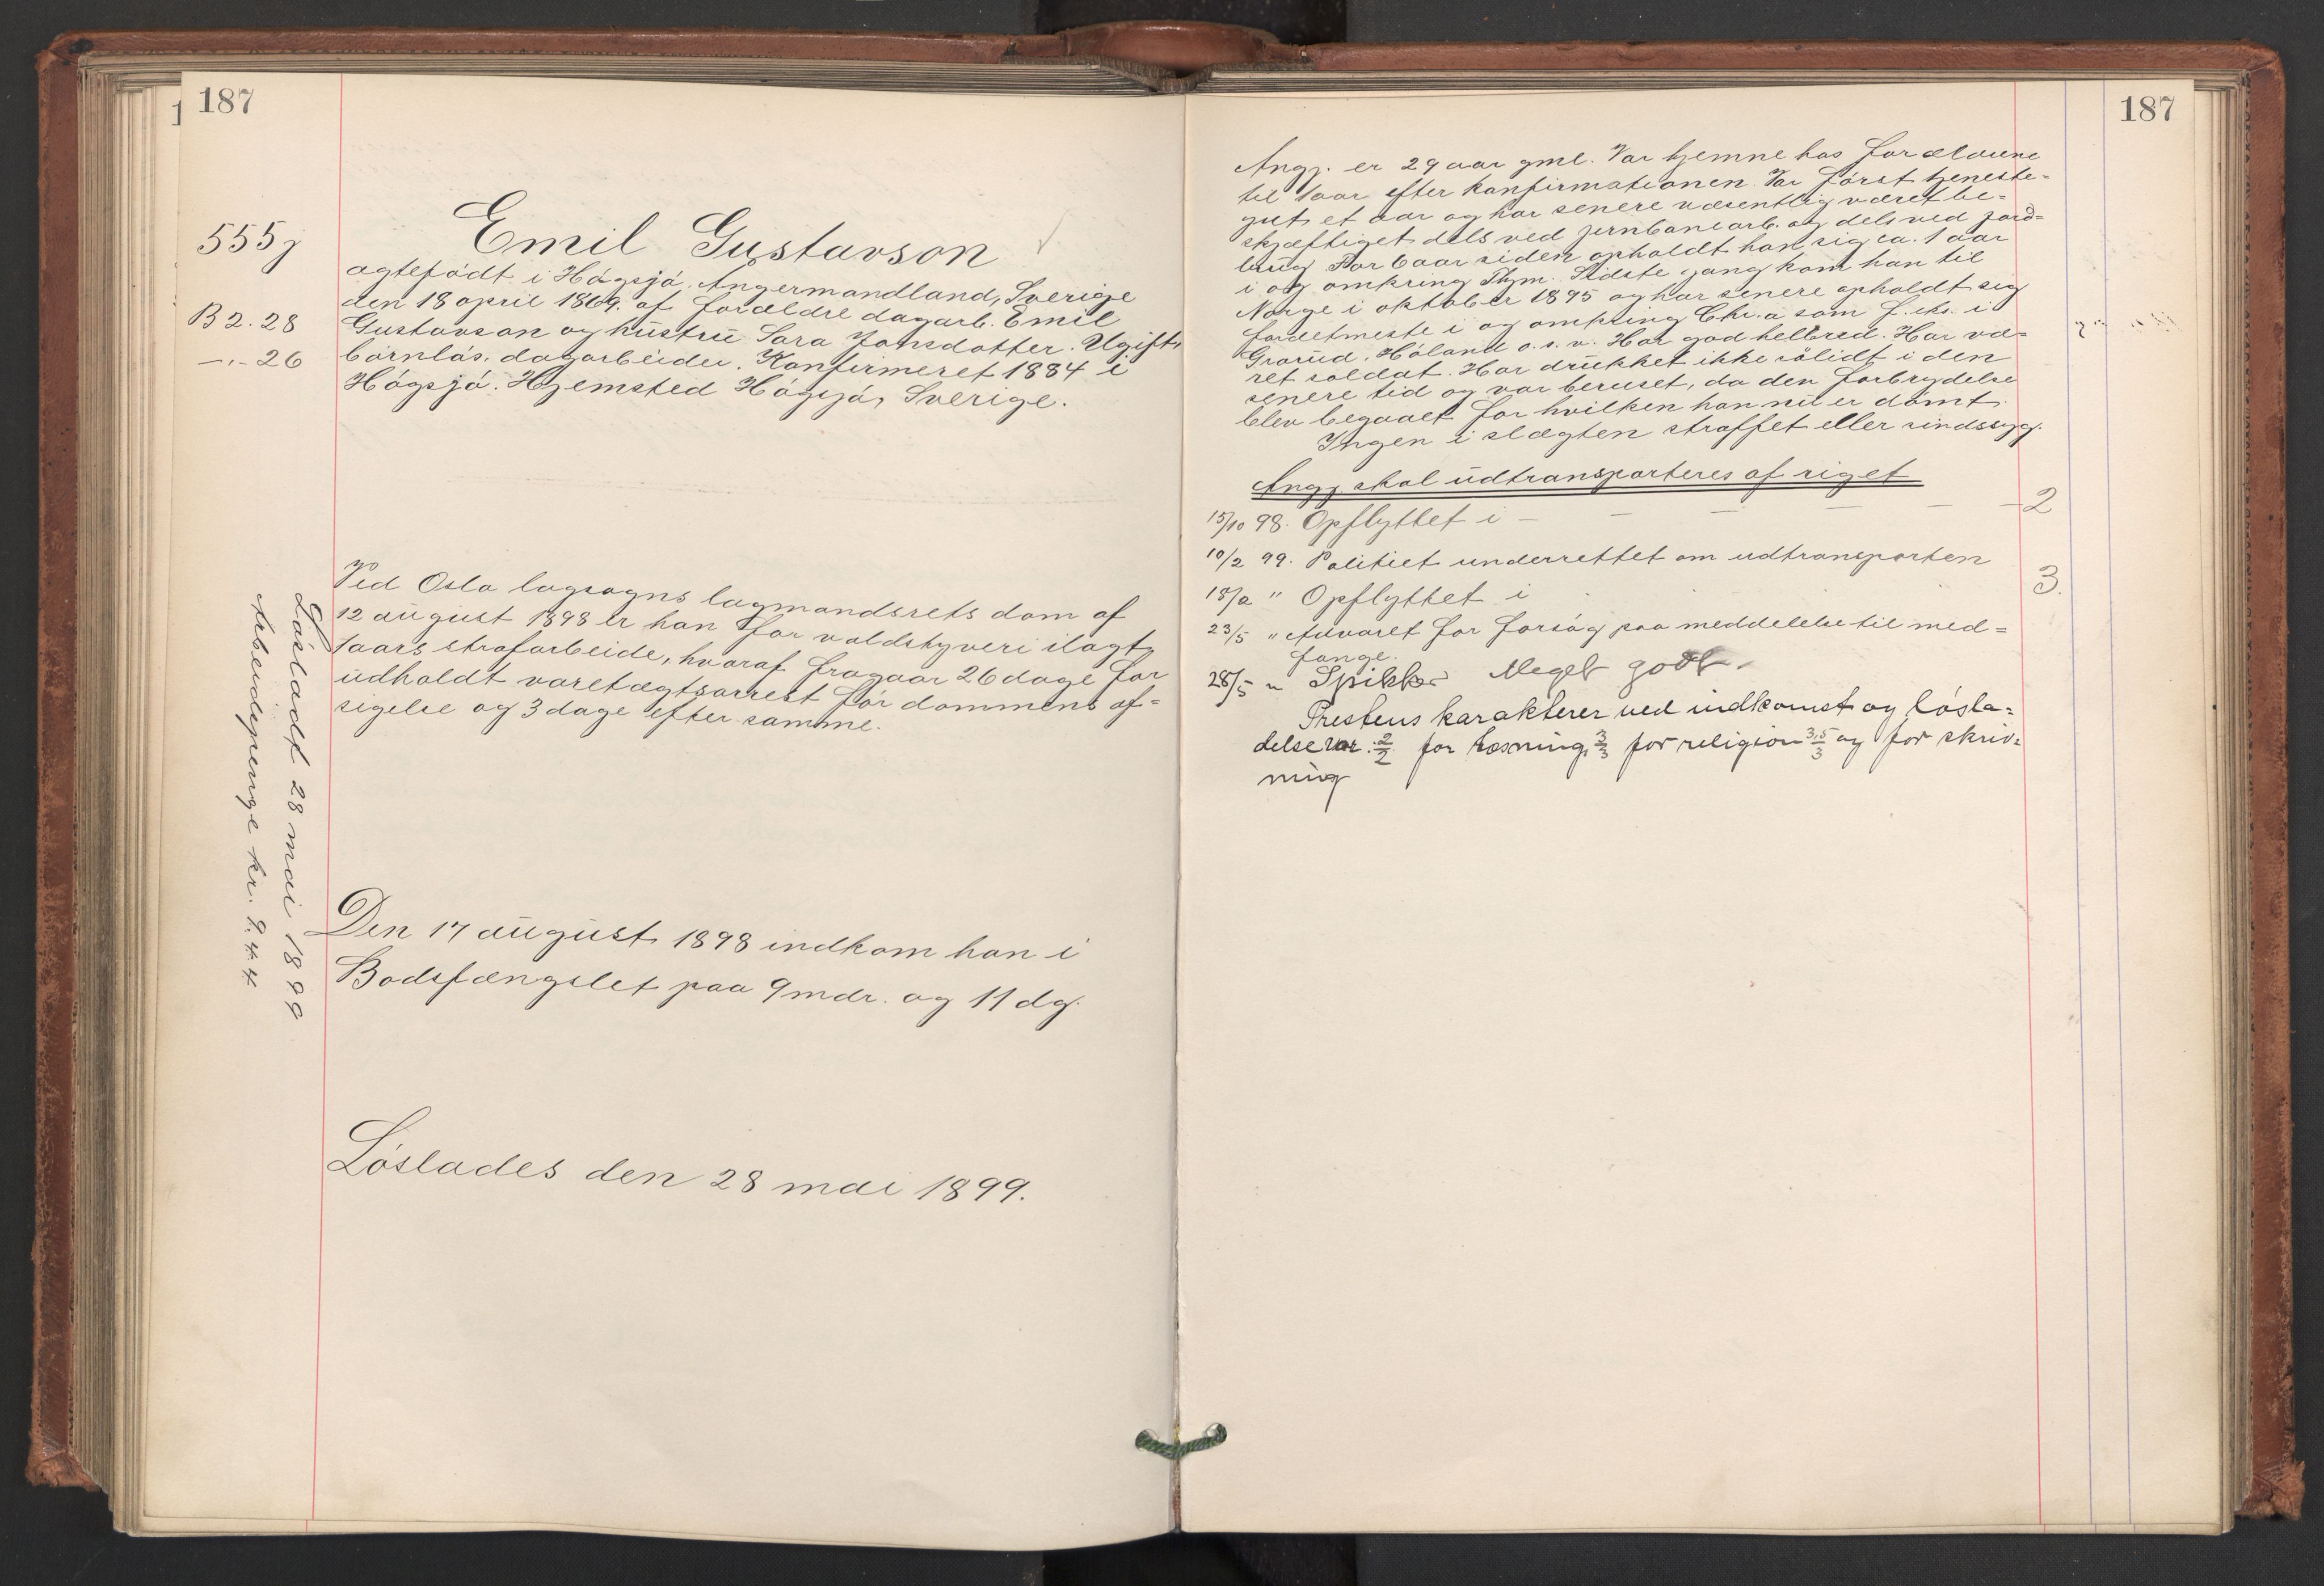 187
555j
B 2. 28
—"— 26
Emil Gustavson
ægtefödt i Högsjö, Angermandland, Sverige
den 18 april 1869. af forældre dagarb. Emil
Gustavson og hustru Sara Jonsdotter. Ugift,
börnlös, dagarbeider. Konfirmeret 1884 i
Högsjö. Hjemsted Högsjö, Sverige.
Ved Oslo lagsogns lagmandsrets dom af
12 august 1898 er han for voldstyveri ilagt
1 aars strafarbeide, hvoraf fragaar 26 dage for
udholdt varetægtsarrest för dommens af=
sigelse og 3 dage efter samme.
Lösladt 28 mai 1899
Arbeidspenge kr. 9.44
Den 17 august 1898 indkom han i
Bodsfængslet paa 9 mdr. og 11 dg.
Löslades den 28 mai 1899.
187
Angj. er 29 aar gml. Var hjemme hos forældrene
til 1 aar efter konfirmationen. Var först tjeneste=
gut et aar og har senere væsentlig været be=
skjæftiget dels ved jernbanearb. og dels ved jord=
brug. For 6 aar siden opholdt han sig ca. 1 aar
i og omkring Thjm. Sidste gang kom han til
Norge i oktober 1895 og har senere opholdt sig
fordetmeste i og omkring Chr.a som f. eks. i
Grorud, Höland o. s. v. Har god helbred. Har væ=
ret soldat. Har drukket ikke solidt i den
senere tid og var beruset, da den forbrydelse
blev begaaet for hvilken han nu er dömt.
Ingen i slægten straffet eller sindssyg.
Angj. skal udtransporteres af riget
15/10 98. Opflyttet i — — — — — 2
10/2 99. Politiet underrettet om udtransporten
18/2 " Opflyttet i 3.
23/5 " Advaret for forsög paa meddelelse til med=
fange.
28/5 " Spikker Meget godt.
Prestens karakterer ved indkomst og lösla=
delse var: 2/2 for læsning, 3/3 for religion 3,5/3 og for skriv=
ning